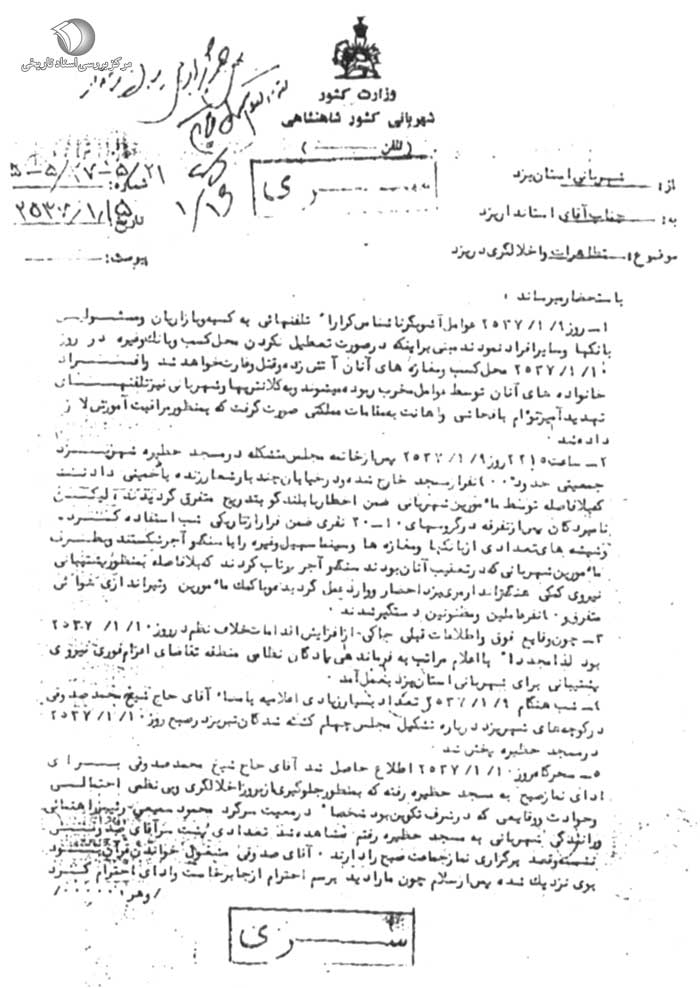 مرکز بررسی اسناد تاریخی
وزارت کشور
شهربانی کشور شاهنشاهی
از: شهربانی استان یزد
به: جناب آقای استاندار یزد
موضوع: تظاهرات و اخلالگری در یزد
شماره: ۵-۵/۱۷-۵/۲۱
تاریخ:
پیوست:
سری
باستحضار میرساند :
۱- روز ۲۵۳۷/۱/۹ عوامل آشوبگر ناشناس کرارا" تلفنهائی به کسبه و بازاریان و مسئولین
بانکها و سایر افراد نمودند مبنی بر اینکه در صورت تعطیل نکردن محل کسب و بانک و غیره در روز
۲۵۳۷/۱/۱۰ محل کسب و مغازه های آنان آتش زده و قتل و غارت خواهد شد و افراد
خانواده های آنان توسط عوامل مخرب ربوده میشوند و به کلانتریها و شهربانی نیز تلفنهای
تهدید آمیز توام با فحاشی و اهانت به مقامات مملکتی صورت گرفت که بمنظور مراقبت آموزش لازم
داده شد
۲- ساعت ۲۲۱۵ روز ۲۵۳۷/۱/۹ پس از خاتمه مجلس متشکله در مسجد حظیره شهر یزد
جمعیتی حدود نفر از مسجد خارج شده و در خیابان چند بار شعار زنده با خمینی دادند
که بلافاصله توسط مامورین شهربانی ضمن اخطار با بلندگو بتدریج متفرق گردیدند ، لیکن
نامبردگان پس از تفرقه در گروههای ۱۰-۲۰ نفری ضمن فرار از تاریکی شب استفاده کرده
شیشه های تعدادی از بانکها و مغازه ها و سینما سهیل و غیره را با سنگ و آجر شکستند و بطرف
مامورین شهربانی که در تعقیب آنان بودند سنگ و آجر پرتاب کردند که بلافاصله بمنظور پشتیبانی
نیروی کمکی هنگ ژاندارمری یزد احضار و وارد عمل گردید و با کمک مامورین و تیراندازی هوائی
متفرق و نفر عاملین و مظنونین دستگیر شدند
۳- چون وقایع فوق و اطلاعات قبلی حاکی از افزایش اقدامات خلاف نظم در روز ۲۵۳۷/۱/۱۰
بود لذا مجددا" با اعلام مراتب به فرماندهی پادگان نظامی منطقه تقاضای اعزام فوری نیروی
پشتیبانی برای شهربانی استان یزد بعمل آمد
۴- شب هنگام ۲۵۳۷/۱/۹ تعداد بسیار زیادی اعلامیه بامضاء آقای حاج شیخ محمد صدوقی
در کوچه های شهر یزد درباره تشکیل مجلس چهلم کشته شدگان تبریز در صبح روز ۲۵۳۷/۱/۱۰
در مسجد حظیره پخش شد
۵- سحرگاه روز ۲۵۳۷/۱/۱۰ اطلاع حاصل شد آقای حاج شیخ محمد صدوقی برای
ادای نماز صبح به مسجد حظیره رفته که بمنظور جلوگیری از بروز اخلالگری و بی نظمی احتمالی
و حوادث و وقایعی که در شرف تکوین بود شخصا" در معیت سرگرد محمود سمیعی رئیس راهنمائی
و رانندگی شهربانی به مسجد حظیره رفتم مشاهده شد تعدادی پشت سر آقای صدوقی
نشسته و قصد برگزاری نماز جماعت صبح را دارند . آقای صدوقی مشغول خواندن قرآن بود
بوی نزدیک شده پس از سلام چون ما را دید برسم احترام از جا برخاست و ادای احترام کرد
سری